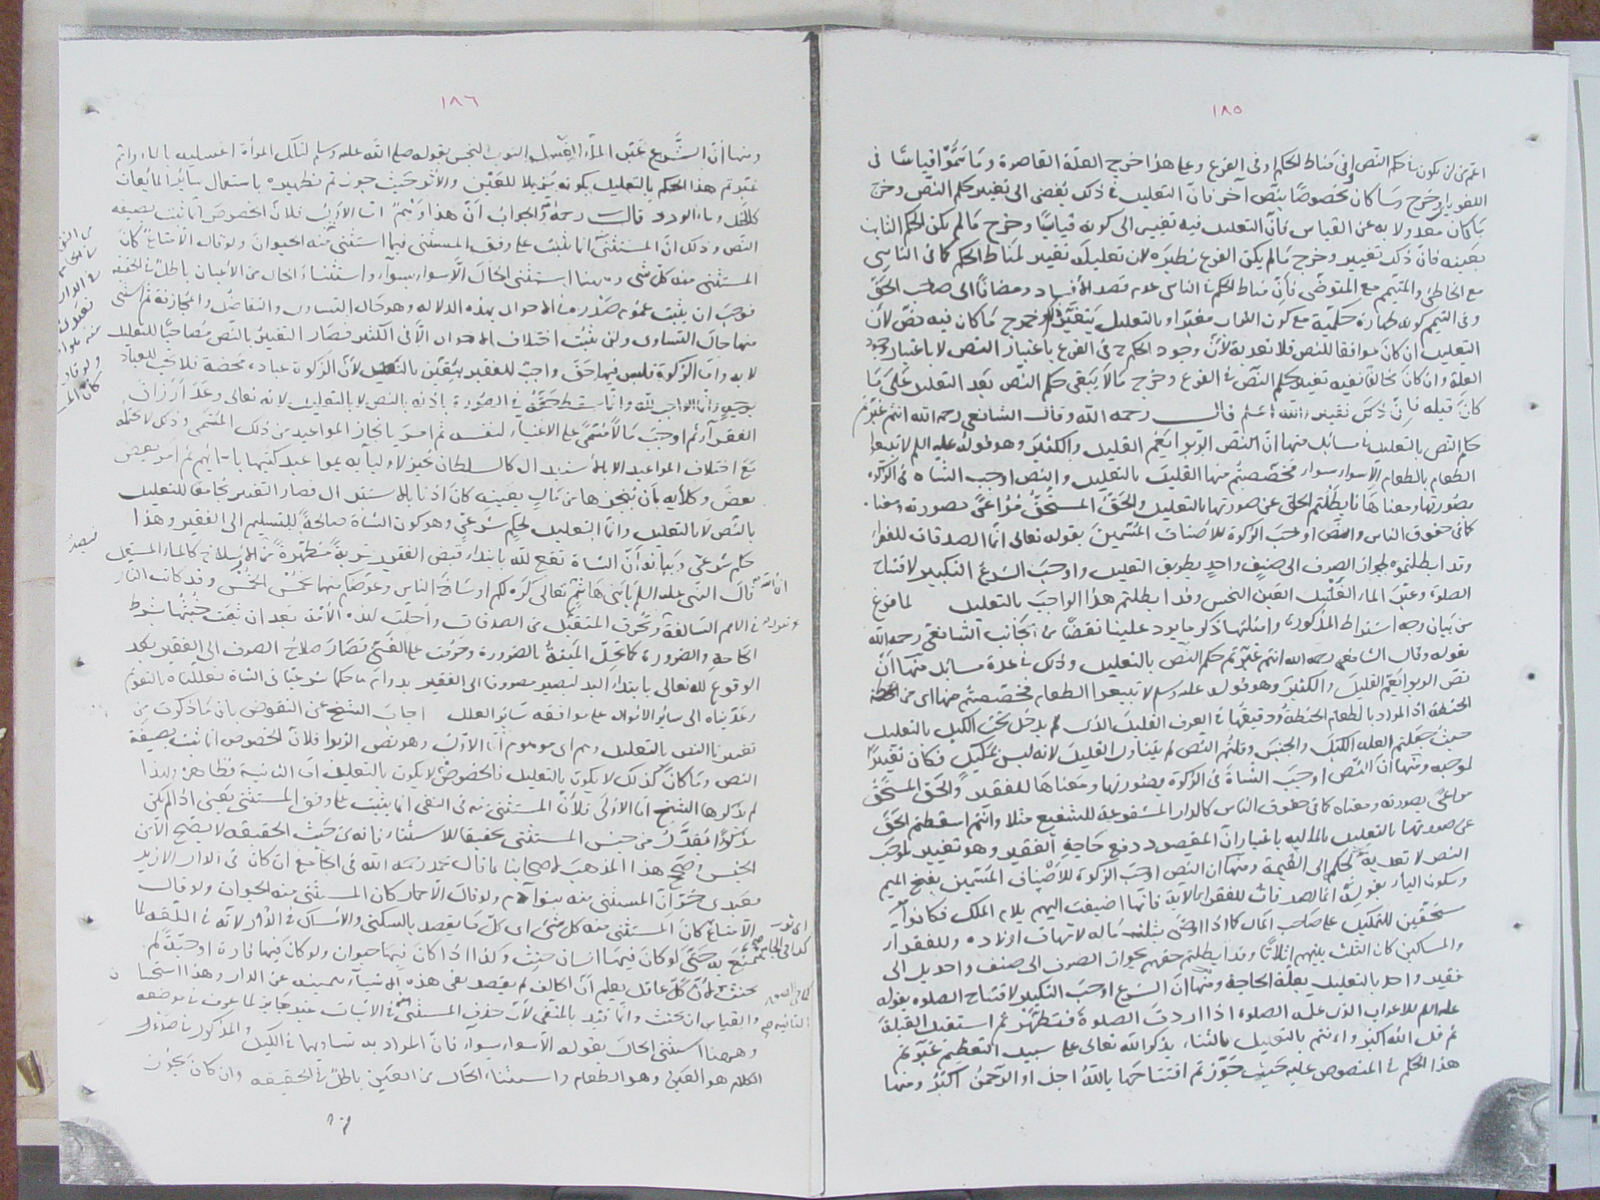 ١٨٥
اعم من ان يكون حكم النص في مناط الحكم او في الفرع وعلى هذا خرج العلة القاصرة وما سموه قياسا في
اللغويات وخرج ما كان مخصوصا بنص آخر فان التعليل في ذلك يفضي الى تغيير حكم النص وخرج
ما كان معدولا به عن القياس فان التعليل فيه تغيير الى كونه قياسا وخرج ما لم يكن الحكم الثابت
بعينه فان ذلك تغيير وخرج ما لم يكن الفرع نظيره لان تعليله تغيير لمناط الحكم كما في الناسي
مع الخاطئ والمتيمم مع المتوضي فان مناط الحكم في الناسي عدم قصد الافساد ومضافا الى صاحب الحق
وفي التيمم كونه طهارة حكمية مع كون التراب مغبرا وبالتعليل يتغير وخرج ما كان فيه نص لان
التعليل ان كان موافقا للنص فلا تعدية لان وجود الحكم في الفرع باعتبار النص لا باعتبار وجود
العلة وان كان مخالفا ففيه تغيير حكم النص في الفرع وخرج ما لا يبقى حكم النص بعد التعليل على ما
كان قبله فان ذلك تغيير والله اعلم قال رحمه الله وقال الشافعي رحمه الله انتم غيرتم
حكم النص بالتعليل في مسائل منها ان النص الربوا يعم القليل والكثير وهو قوله عليه السلام لا تبيعوا
الطعام بالطعام الا سواء بسواء فخصصتم منها القليل بالتعليل والنص اوجب الشاة في الزكوة
بصورتها ومعناها فابطلتم الحق عن صورتها بالتعليل والحق المستحق مراعى بصورته ومعناه
كما في حقوق الناس والنص اوجب الزكوة للاصناف المسمين بقوله تعالى انما الصدقات للفقراء
وقد ابطلتموه بجواز الصرف الى صنف واحد بطريق التعليل واوجب الشرع التكبير لافتتاح
الصلوة وعين الماء لغسل العين النجس وقد ابطلتم هذا الواجب بالتعليل لما فرغ
من بيان وجه اشتراط المذكور وامثلتها ذكر ما يرد علينا نقضا من جانب الشافعي رحمه الله
بقوله وقال الشافعي رحمه الله انتم غيرتم حكم النص بالتعليل وذلك في عدة مسائل منها ان
نص الربوا يعم القليل والكثير وهو قوله عليه وسلم لا تبيعوا الطعام فخصصتم منها اي من
الحنطة اذ المراد بالطعام الحنطة ودقيقها في العرف القليل الذي لم يدخل تحت الكيل بالتعليل
حيث جعلتم العلة الكيل والجنس وقلتم النص لم يتناول القليل لانه ليس بمكيل فكان تغييرا
لموجبه ومنها ان النص اوجب الشاة في الزكوة بصورتها ومعناها للفقير والحق المستحق
مراعى بصورته ومعناه كما في حقوق الناس كالدار المشفوعة للشفيع مثلا وانتم اسقطتم الحق
عن صورتها بالتعليل بالمالية باعتبار ان المقصود دفع حاجة الفقير وهو تغيير لموجب
النص لا تعدية للحكم الى القيمة ومنها ان النص اوجب الزكوة للاصناف المسمين بفتح الميم
وسكون الياء بقوله انما الصدقات للفقراء الآية فانها اضيفت اليهم بلام الملك فكانوا
مستحقين للتمليك على صاحب المال كما اذا اوصى بثلث ماله لامهات اولاده وللفقراء
والمساكين كان الثلث بينهم اثلاثا وقد ابطلتم حقهم بجواز الصرف الى صنف واحد بل الى
فقير واحد بالتعليل بعلة الحاجة ومنها ان الشرع اوجب التكبير لافتتاح الصلوة بقوله
عليه السلام للاعرابي الذي علمه الصلوة اذا اردت الصلوة فتطهر ثم استقبل القبلة
ثم قل الله اكبر وانتم بالتعليل بالثناء بذكر الله تعالى على سبيل التعظيم غيرتم
هذا الحكم في المنصوص عليه حيث جوزتم افتتاحها بالله اجل او الرحمن اكبر ومنها
١٨٦
ومنها ان الشرع عين الماء لغسل الثوب النجس بقوله صلى الله عليه وسلم لتلك المرأة اغسليه بالماء وانتم
غيرتم هذا الحكم بالتعليل بكونه مزيلا للعين والاثر حيث جوزتم تطهيره باستعمال سائر المائعات
كالخل وماء الورد قال رحمه الله والجواب ان هذا وهم اما الاول فلان الخصوص انما ثبت بصيغة
النص وذلك ان المستثنى انما يثبت على وفق المستثنى فيما استثنى منه الحيوان ولو قال الامتاع كان
المستثنى منه كل شيء وههنا استثنى الحال الا سواء بسواء واستثناء الحال من الاعيان باطل في الحقيقة
فوجب ان يثبت عموم صدره في الاحوال بهذه الدلالة وهو حال التساوي والتفاضل والمجازفة ثم استثنى
منها حال التساوي ولن يثبت اختلاف الاحوال الا في الكثير فصار التغيير بالنص مصاحبا للتعليل
لا به واما الزكوة فليس فيها حق واجب للفقير يتغير بالتعليل لان الزكوة عبادة محضة فلا تجب للعباد
بوجه وانما الواجب لله وانما سقط حقه في الصورة باذنه بالنص لا بالتعليل لانه تعالى وعد ارزاق
الفقراء ثم اوجب مالا مسمى على الاغنياء لنفسه ثم امر بانجاز المواعيد من ذلك المسمى وذلك لا يحتمله
مع اختلاف المواعيد الا بالاستبدال كالسلطان يجيز لاوليائه بمواعيد كتبها باسمائهم ثم امر بعض
بعض وكلائه بان ينجزها من مال بعينه كان اذنا بالاستبدال فصار التغيير مجامعا للتعليل
بالنص لا بالتعليل وانما التعليل لحكم شرعي وهو كون الشاة صالحة للتسليم الى الفقير وهذا
حكم شرعي وبيانه ان الشاة تقع لله بابتداء قبض الفقير قربة مطهرة من الاوساخ كالماء المستعمل
قال النبي عليه السلام يا بني هاشم ان الله تعالى كره لكم اوساخ الناس وعوضكم منها بخمس الخمس وقد كانت النار
في الامم السالفة تحرق المتقبل من الصدقات واحلت لهذه الامة بعد ان ثبت خبثها بشرط
الحاجة والضرورة كما تحل الميتة بالضرورة وحرمت على الغني فصار صلاح الصرف الى الفقير بعد
الوقوع لله تعالى بابتداء اليد ليصير مصروفا الى الفقير بدوام يده حكما شرعيا في الشاة فعللناه بالتقوم
وعديناه الى سائر الاموال على موافقة سائر العلل اجاب الشيخ عن النقوض بان ما ذكرت من
تغييرنا النص بالتعليل وهم اي موهوم اما الاول وهو نص الربوا فلان الخصوص انما ثبت بصيغة
النص وما كان كذلك لا يكون بالتعليل فالخصوص لا يكون بالتعليل اما الثانية فظاهرة ولهذا
لم يذكرها الشيخ اما الاولى فلان المستثنى منه في النفي انما يثبت على وفق المستثنى يعني اذا لم يكن
مذكورا يقدر من جنس المستثنى تحقيقا للاستثناء فانه من حيث الحقيقة لا يصح الا من
الجنس وصح هذا المذهب لاصحابنا ما قال محمد رحمه الله في الجامع ان كان في الدار الا زيد
فعبدي حر ان المستثنى منه بنوا آدم ولو قال الا حمار كان المستثنى منه الحيوان ولو قال
الا متاع كان المستثنى منه كل شيء اي كل ما يقصد بالسكنى والامساك في الدور لانه في اللغة لما
يتمتع به حتى لو كان فيها انسان حنث وكذا اذا كان فيها حيوان ولو كان فيها فارة او حية لم
يحنث لان كل عاقل يعلم ان الحالف لم يقصد نفي هذه الاشياء بيمينه عن الدار وهذا استحسان
والقياس ان يحنث وانما قيد بالمنفي لان حذف المستثنى منه في الاثبات غير جايز لما عرف في موضعه
وههنا استثنى الحال بقوله الا سواء بسواء فان المراد به تساويهما في الكيل والمذكور في صدر
الكلام هو العين وهو الطعام واستثناء الحال من العين باطل في الحقيقة وان كان يجوز